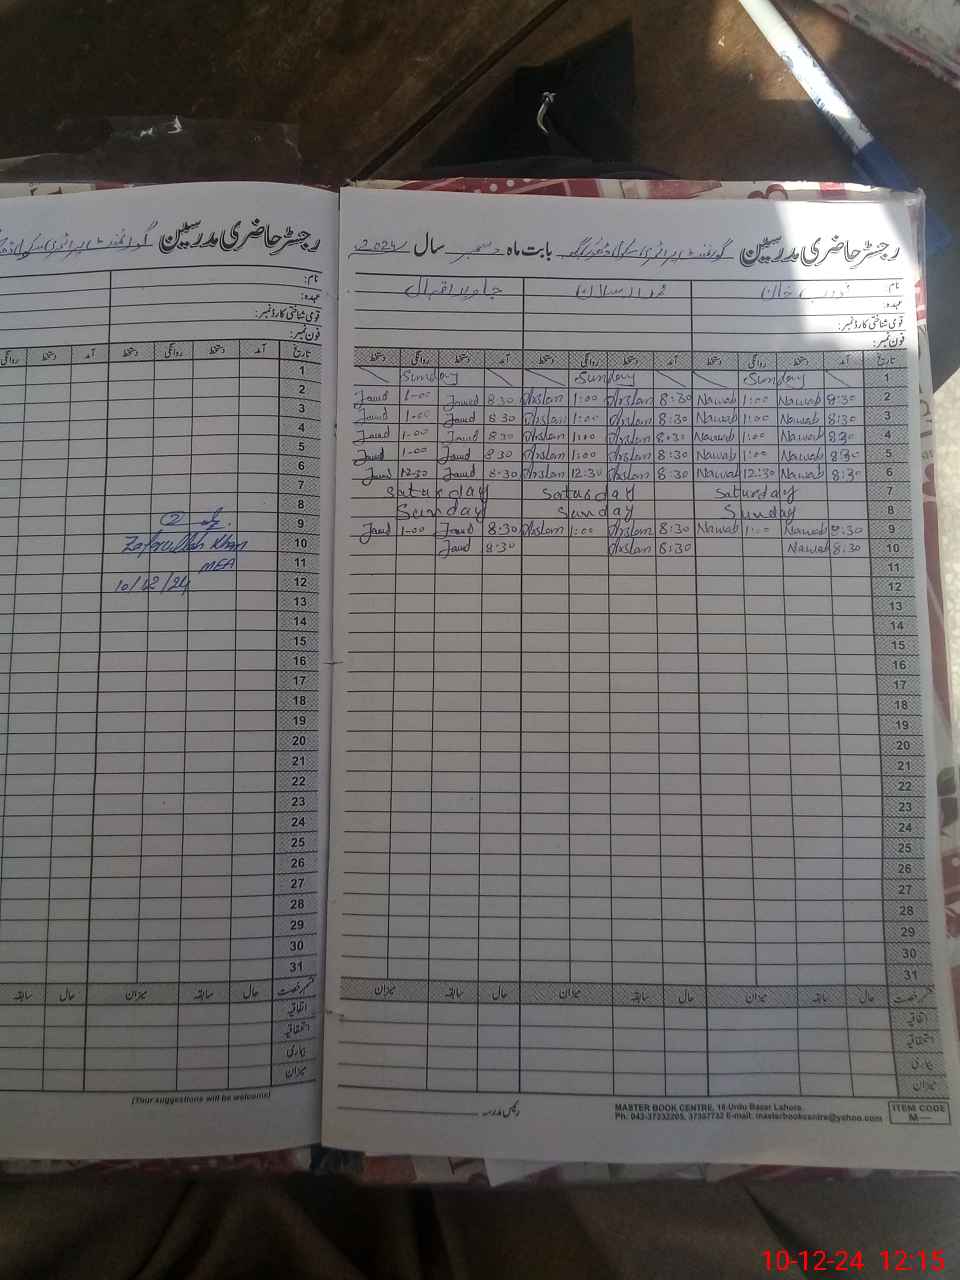 رجسٹر حاضری مدرسین گورنمنٹ پرائمری سکول
نام:
عہدہ:
قومی شناختی کارڈ نمبر:
فون نمبر:
تاریخ آمد دستخط روانگی دستخط آمد دستخط روانگی
1
2
3
4
5
6
7
8
9
10
11
12
13
14
15
16
17
18
19
20
21
22
23
24
25
26
27
28
29
30
31
Zafarullah Khan
MEA
10/12/24
قسم رخصت حال سابقہ میزان حال سابقہ
اتفاقیہ
استحقاقیہ
بیماری
میزان
(Your suggestions will be welcome)
رجسٹر حاضری مدرسین گورنمنٹ پرائمری سکول بابت ماہ دسمبر سال 2024ء
نام: خان جاوید اقبال
عہدہ:
قومی شناختی کارڈ نمبر:
فون نمبر:
تاریخ آمد دستخط روانگی دستخط آمد دستخط روانگی دستخط آمد دستخط روانگی دستخط
Sunday Sunday Sunday 1
Javed 1-00 Javed 8:30 Arslan 1:00 Arslan 8:30 Nawab 1:00 Nawab 8:30 2
Javed 1-00 Javed 8:30 Arslan 1:00 Arslan 8:30 Nawab 1:00 Nawab 8:30 3
Javed 1-00 Javed 8:30 Arslan 1:00 Arslan 8:30 Nawab 1:00 Nawab 8:30 4
Javed 1-00 Javed 8:30 Arslan 1:00 Arslan 8:30 Nawab 1:00 Nawab 8:30 5
Javed 12:30 Javed 8:30 Arslan 12:30 Arslan 8:30 Nawab 12:30 Nawab 8:30 6
Saturday Saturday Saturday 7
Sunday Sunday Sunday 8
Javed 1-00 Javed 8:30 Arslan 1:00 Arslan 8:30 Nawab 1:00 Nawab 8:30 9
Javed 8:30 Arslan 8:30 Nawab 8:30 10
11
12
13
14
15
16
17
18
19
20
21
22
23
24
25
26
27
28
29
30
31
قسم رخصت حال سابقہ میزان حال سابقہ میزان حال سابقہ میزان
اتفاقیہ
استحقاقیہ
بیماری
میزان
رئیس مدرسہ
MASTER BOOK CENTRE, 16-Urdu Bazar Lahore.
Ph: 042-37232205, 37357732 E-mail: masterbookcentre@yahoo.com
ITEM CODE
M—
10-12-24 12:15